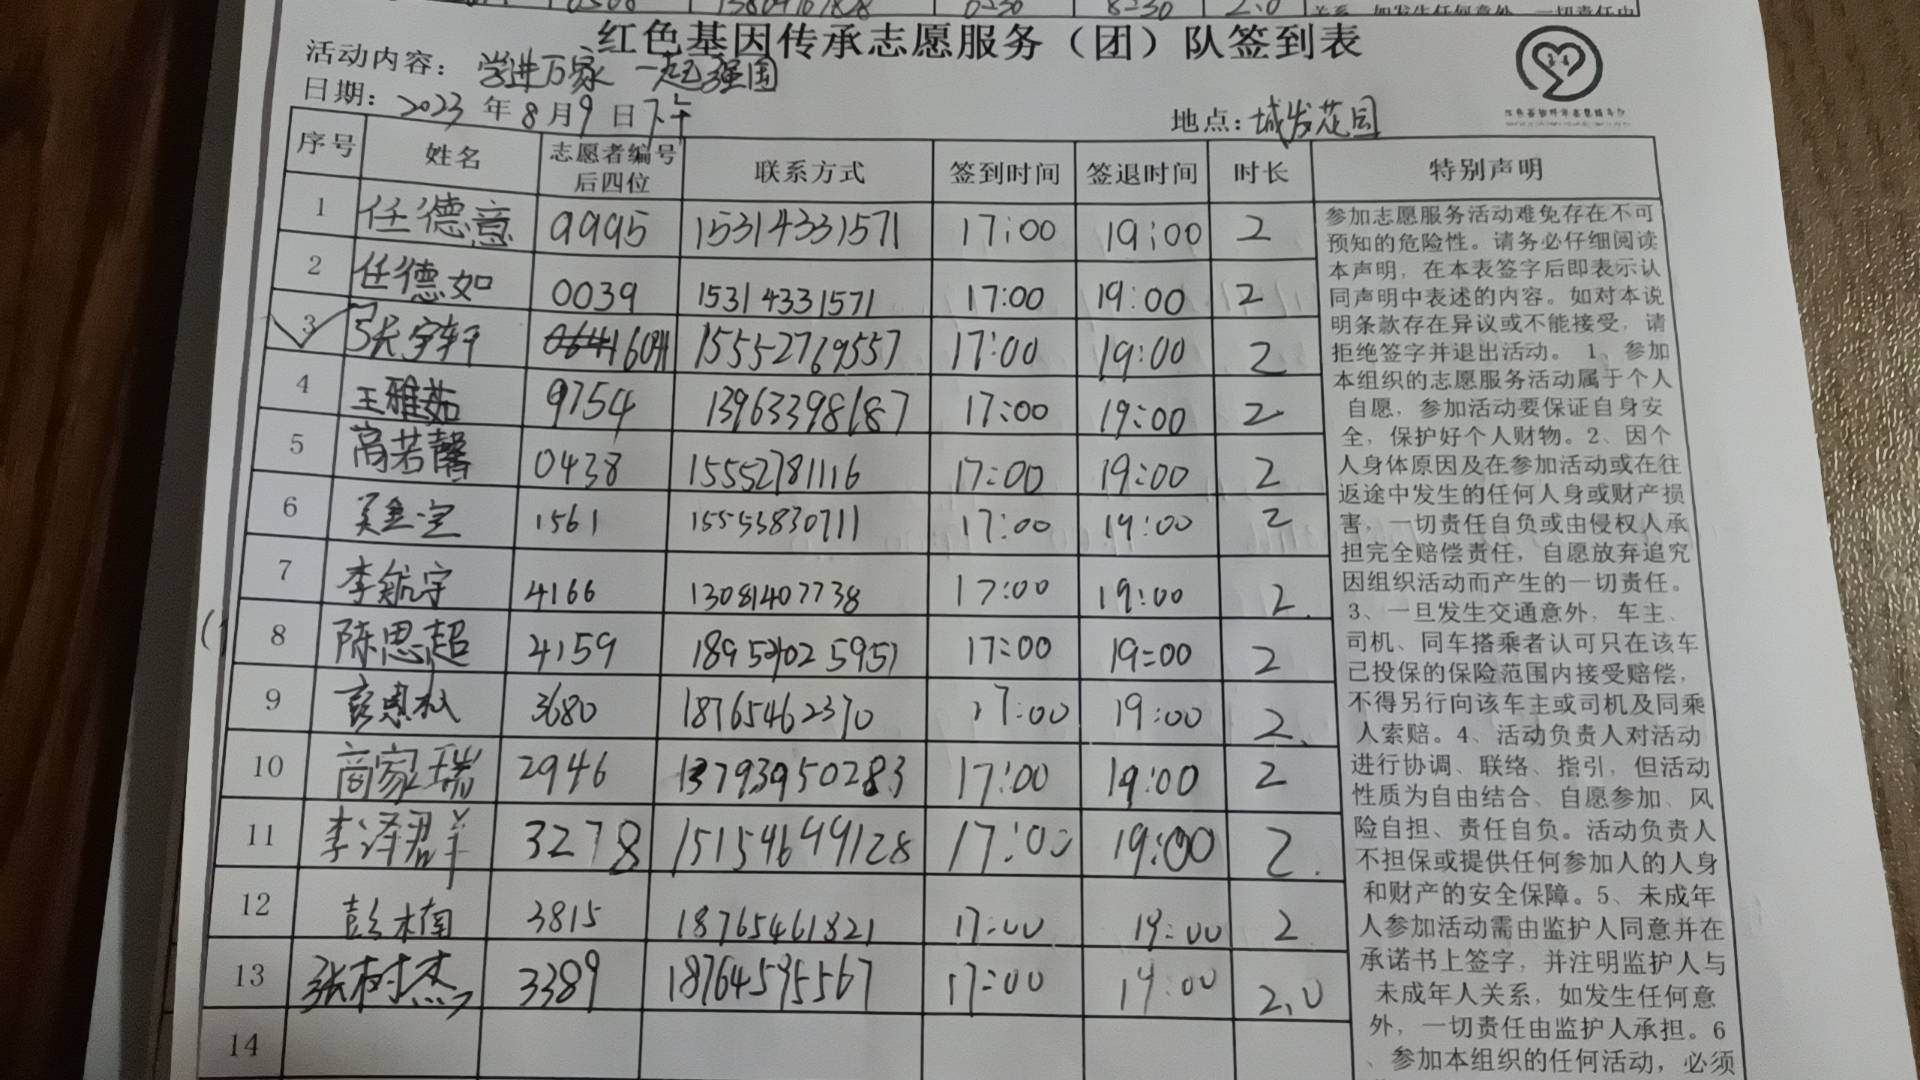 红色基因传承志愿服务（团）队签到表
活动内容：学进万家 一起强国
日期：2023年8月9日下午 地点：城发花园
序号 姓名 志愿者编号后四位 联系方式 签到时间 签退时间 时长 特别声明
1 任德意 9995 15314331571 17:00 19:00 2
2 任德如 0039 15314331571 17:00 19:00 2
3 张宇轩 15552769557 17:00 19:00 2
4 王雅茹 9754 13963398187 17:00 19:00 2
5 高若馨 0438 15552781116 17:00 19:00 2
6 1561 15553830711 17:00 19:00 2
7 李航宇 4166 13081407738 17:00 19:00 2
8 陈思超 4159 17:00 19:00 2
9 3680 18765462370 17:00 19:00 2
10 商家瑞 2946 13793950283 17:00 19:00 2
11 李泽君羊 3278 15154699128 17:00 19:00 2
12 彭楠 3815 18765461821 17:00 19:00 2
13 张树杰 3389 18764595567 17:00 19:00 2.0
14
参加志愿服务活动难免存在不可
预知的危险性。请务必仔细阅读
本声明，在本表签字后即表示认
同声明中表述的内容。如对本说
明条款存在异议或不能接受，请
拒绝签字并退出活动。1、参加
本组织的志愿服务活动属于个人
自愿，参加活动要保证自身安
全，保护好个人财物。2、因个
人身体原因及在参加活动或在往
返途中发生的任何人身或财产损
害，一切责任自负或由侵权人承
担完全赔偿责任，自愿放弃追究
因组织活动而产生的一切责任。
3、一旦发生交通意外，车主、
司机、同车搭乘者认可只在该车
已投保的保险范围内接受赔偿，
不得另行向该车主或司机及同乘
人索赔。4、活动负责人对活动
进行协调、联络、指引，但活动
性质为自由结合、自愿参加、风
险自担、责任自负。活动负责人
不担保或提供任何参加人的人身
和财产的安全保障。5、未成年
人参加活动需由监护人同意并在
承诺书上签字，并注明监护人与
未成年人关系，如发生任何意
外，一切责任由监护人承担。6
、参加本组织的任何活动，必须